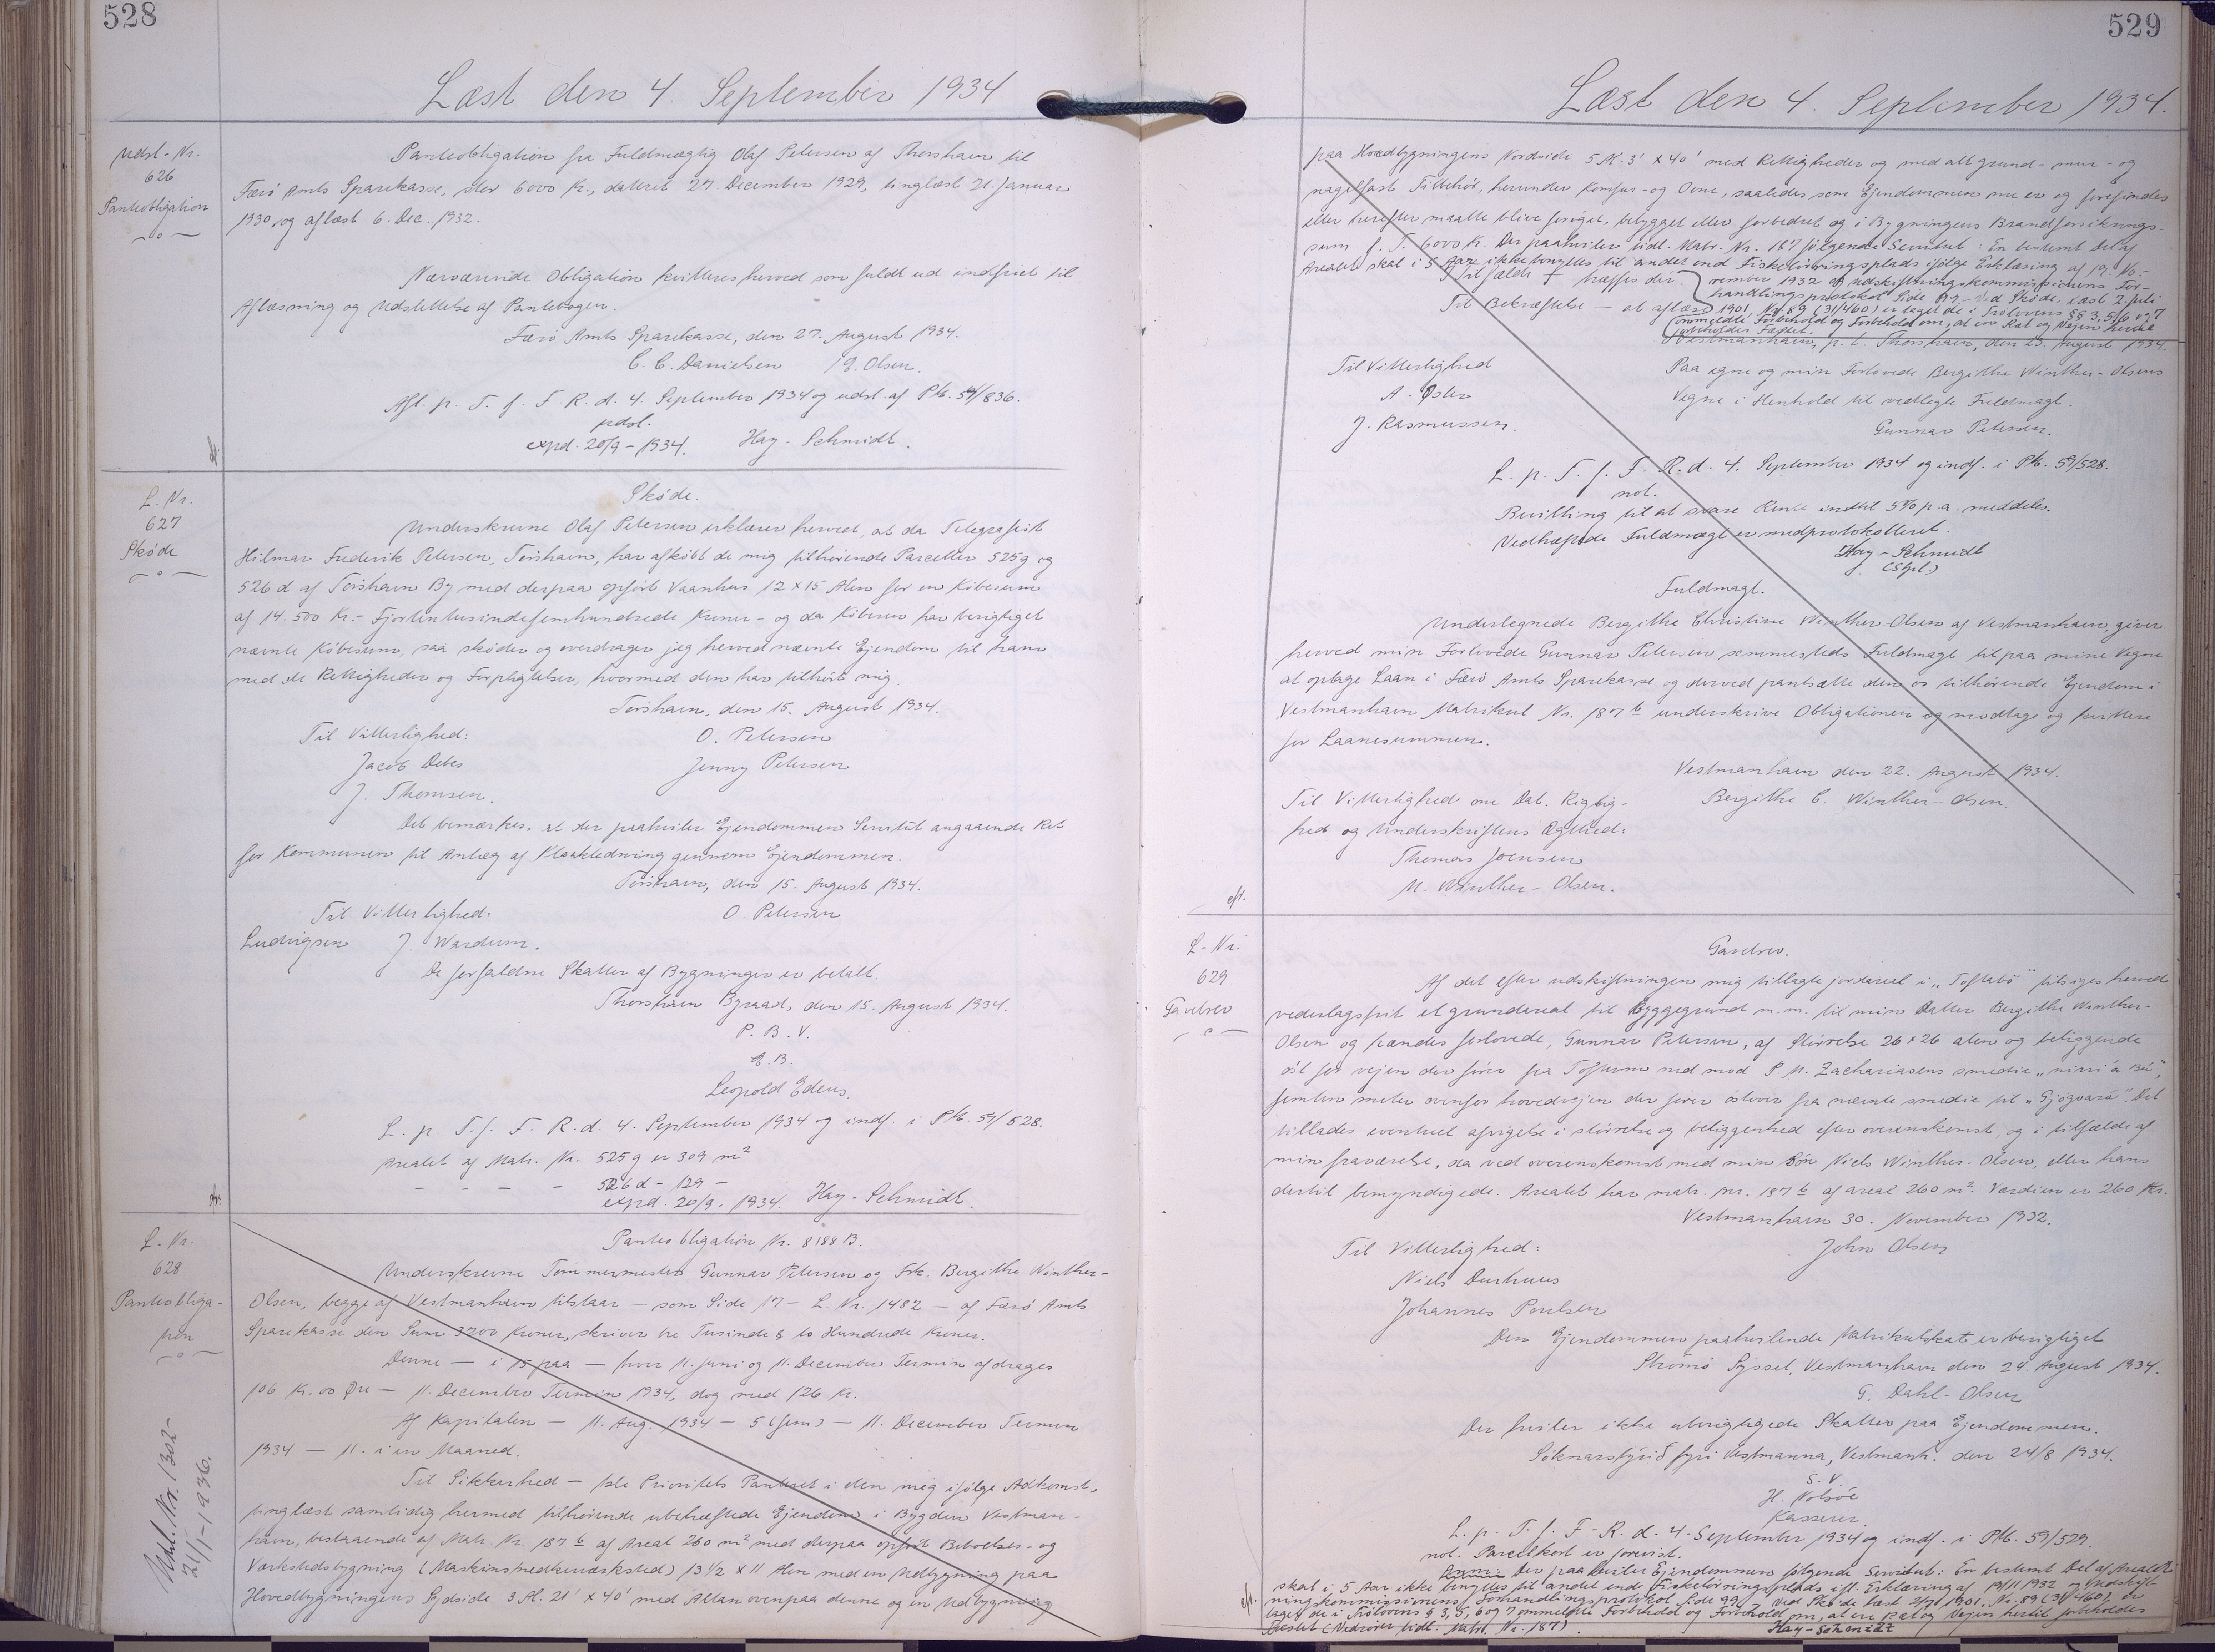 528
Læst den 4. September 1934
Udsl.-Nr.
626
Panteobligation
Panteobligation fra Fuldmægtig Olaf Petersen af Thorshavn til
Færø Amts Sparekasse, stor 6000 Kr., dateret 27. December 1929, tinglæst 21. Januar
1930 og aflæst 6. Dec. 1932.
Nærværende Obligation kvitteres herved som fuldt ud indfriet til
Aflæsning og Udslettelse af Pantebogen.
Færø Amts Sparekasse, den 27. August 1934.
C. C. Danielsen / Olsen.
Afl. p. T. f. F. R. d. 4. September 1934 og udsl. af Ptb. 54/836.
udsl.
expd. 20/9-1934. Hay-Schmidt.
L. Nr.
627
Skøde
Skøde.
Underskrevne Olaf Petersen erklærer herved, at da Telegrafist
Hilmar Frederik Petersen, Tórshavn, har afkøbt de mig tilhørende Parceller 525g og
526 d af Tórshavn By med derpaa opført Vaanhus 12 x 15 Alen for en Købesum
af 14.500 Kr. - Fjortentusindefemhundrede Kroner - og da Køberen har berigtiget
nævnte Købesum, saa skøder og overdrager jeg herved nævnte Ejendom til ham
med de Rettigheder og Forpligtelser, hvormed den har tilhørt mig.
Tórshavn, den 15. August 1934.
Til Vitterlighed: O. Petersen
Jacob Debes Jenny Petersen
J. Thomsen.
Det bemærkes, at der paahviler Ejendommen Servitut angaaende Ret
for Kommunen til Anlæg af Kloakledning gennem Ejendommen.
Tórshavn, den 15. August 1934.
Til Vitterlighed: O. Petersen
Ludvigsen J. Wardum.
De forfaldne Skatter af Bygninger er betalt.
Thorshavn Byraad, den 15. August 1934.
P. B. V.
E. B.
Leopold Edens.
L. p. T. f. F. R. d. 4. September 1934 og indf. i Ptb. 59/528.
Arealet af Matr. Nr. 525g er 309 m²
- - - - 526 d - 129 -
expd. 20/9. 1934. Hay-Schmidt.
L. Nr.
628
Panteobliga-
tion
Udsl. Nr. 1302-
21/1-1936.
Panteobligation Nr. 8188 B.
Underskrevne Tømmermester Gunnar Petersen og Frk. Bergithe Winther-
Olsen, begge af Vestmanhavn tilstaar - som Side 17 - L. Nr. 1482 - af Færø Amts
Sparekasse den Sum 3200 Kroner, skriver tre Tusinde & to Hundrede Kroner.
Denne - i 15 paa - hver 11. Juni og 11. December Termin afdrages
106 Kr. 00 Øre - 11. December Termin 1934, dog med 126 Kr.
Af Kapitalen - 11. Aug. 1934 - 5 (fem) - 11. December Termin
1934 - 11. i en Maaned.
Til Sikkerhed - 1ste Prioritets Panteret i den mig ifølge Adkomst,
tinglæst samtidig hermed tilhørende ubehæftede Ejendom i Bygden Vestman-
havn, bestaaende af Matr. Nr. 187 b af Areal 260 m² med derpaa opført Beboelses- og
Værkstedsbygning (Maskinsnedkerværksted) 13 1/2 x 11 Alen med en Udbygning paa
Hovedbygningens Sydside 3 Al. 21' x 40' med Altan ovenpaa denne og en Udbygning
529
Læst den 4. September 1934.
paa Hovedbygningens Nordside 5 Al. 3' x 40' med Rettigheder og med alt grund- mur- og
nagelfast Tilbehør, herunder Komfur- og Ovne, saaledes som Ejendommen nu er og forefindes
eller herefter maatte blive forøget, bebygget eller forbedret og i Bygningens Brandforsikrings-
sum f. T. 6000 Kr. Der paahviler tidl. Matr. Nr. 187 følgende Servitut: En bestemt Del af
Arealet skal i 5 Aar ikke benyttes til andet end Fisketørringsplads ifølge Erklæring af 19. No-
vember 1932 og Udskiftningskommissionens For-
handlingsprotokol Side 99 - Ved Skøde læst 2. Juli
1901, Nr. 89 (31/460) er taget de i Frølovens §§ 3, 5, 6 og 7
ommeldte Forbehold og Forbehold om, at en Ret og Vejen hertil
forbeholdes Fæstet.
Tilfælde + træffes der.
Til Bekræftelse - at aflæse
Vestmanhavn, p. t. Thorshavn, den 23. August 1934.
Til Vitterlighed Paa egne og min Forlovede Bergithe Winther-Olsens
A. Øster Vegne i Henhold til vedlagte Fuldmagt.
J. Rasmussen. Gunnar Petersen.
L. p. T. f. F. R. d. 4. September 1934 og indf. i Ptb. 59/528.
not.
Bevilling til at svare Rente indtil 5% p.a. meddeles.
Vedhæftede Fuldmagt er medprotokolleret.
Hay-Schmidt
Fuldmagt.
Undertegnede Bergithe Christine Winther-Olsen af Vestmanhavn, giver
herved min Forlovede Gunnar Petersen sammesteds Fuldmagt til paa mine Vegne
at optage Laan i Færø Amts Sparekasse og derved pantsætte den os tilhørende Ejendom i
Vestmanhavn Matrikul Nr. 187 b underskrive Obligationen og modtage og kvittere
for Laanesummen.
Vestmanhavn den 22. August 1934.
Til Vitterlighed om Dat. Rigtig- Bergithe C. Winther-Olsen.
hed og Underskriftens Ægthed:
Thomas Joensen
M. Winther-Olsen.
L. Nr.
629
Gavebrev
Gavebrev.
Af det efter udskiftningen mig tillagte jordareal i "Toftabø" tilsiges herved
vederlagsfrit et grundareal til Byggegrund m.m. til min Datter Bergithe Winther-
Olsen og hendes forlovede, Gunnar Petersen, af størrelse 26 x 26 alen og beliggende
øst for vejen der fører fra Toftum ned mod P. M. Zachariasens smedie "niðri á Bø",
femten meter ovenfor hovedvejen der fører østover fra nævnte smedie til "Gjógvará". Det
tillades eventuel afvigelse i størrelse og beliggenhed efter overenskomst, og i tilfælde af
min fraværelse, da ved overenskomst med min Søn Niels Winther-Olsen, eller hans
dertil bemyndigede. Arealet har matr. nr. 187 b af areal 260 m². Værdien er 260 Kr.
Vestmanhavn 30. November 1932.
Til Vitterlighed: John Olsen
Niels Durhuus
Johannes Poulsen
Den Ejendommen paahvilende Matrikulskat er berigtiget
Strømø Syssel, Vestmanhavn den 24. August 1934.
G. Dahl-Olsen
Der hviler ikke uberigtigede Skatter paa Ejendommen.
Sóknarstýrið fyri Vestmanna, Vestmanh. den 24/8 1934.
S. V.
H. Nolsøe
Kasserer.
L. p. T. f. F. R. d. 4. September 1934 og indf. i Ptb. 59/529.
not. Parcelkort er forevist.
Anm: Der paahviler Ejendommen følgende Servitut: En bestemt Del af Arealet
skal i 5 Aar ikke benyttes til andet end Fisketørringsplads ifl. Erklæring af 19/11 1932 og Udskift-
ningskommissionens Forhandlingsprotokol Side 99. Ved Skøde læst 2/7 1901, Nr. 89 (31/460) er
taget de i Frølovens § 3, 5, 6 og 7 ommeldte Forbehold og Forbehold om, at en Ret og Vejen hertil forbeholdes
Fæstet (Vedrører tidl. Matr. Nr. 187). Hay-Schmidt